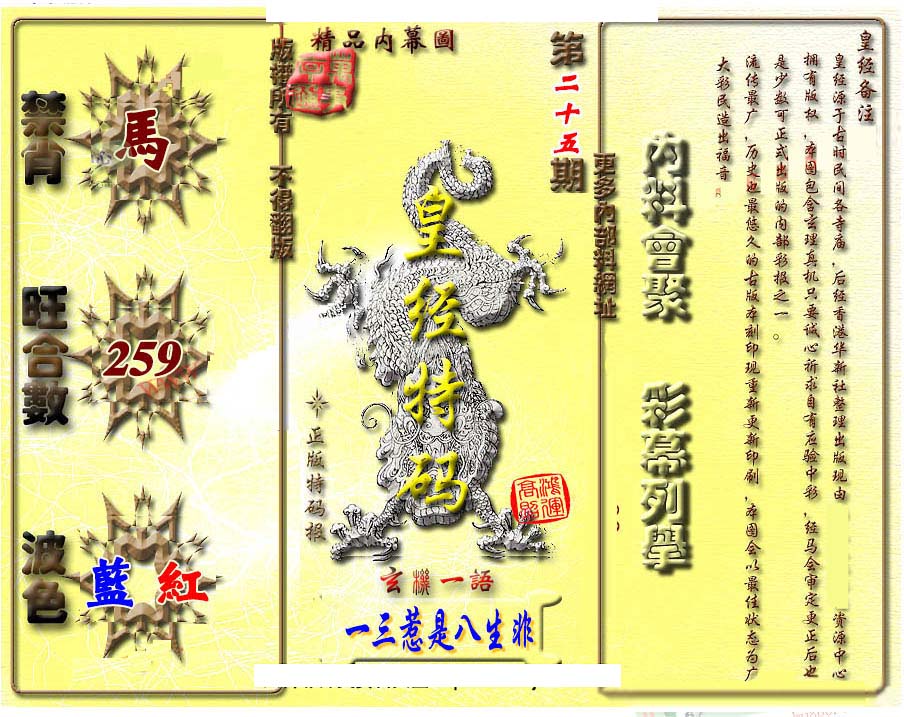 精品内幕圖
版權所有 不得翻版
第二十五期
更多內部料網址
禁肖
馬
旺合數
259
波色
藍 紅
皇经特码
正版特码报
鴻運高照
玄機一語
一三惹是八生非
內料會聚 彩幕列舉
皇经备注
皇经源于古时民间各寺庙,后经香港华新社整理出版现由 资源中心
拥有版权,本图包含玄理真机只要诚心祈求自有应验中彩,经马会审定更正后也
是少数可正式出版的内部彩报之一。
流传最广,历史也最悠久的古版本刻印现重新更新印刷,本图会以最佳状态为广
大彩民造出福音